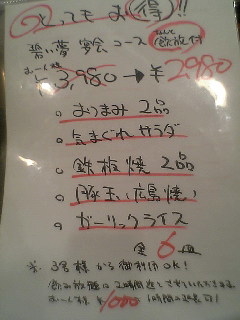 とってもお得!!
碧い夢 宴会コース 飲放付
お一人様 3,980→¥2980
。おつまみ 2品
。気まぐれサラダ
。鉄板焼 2品
。豚玉(広島焼)
。ガーリックライス
全6皿
※ 3名様から御利用OK!
飲み放題は2時間迄とさせていただきます。
お一人様 ¥1000 1時間の延長可!